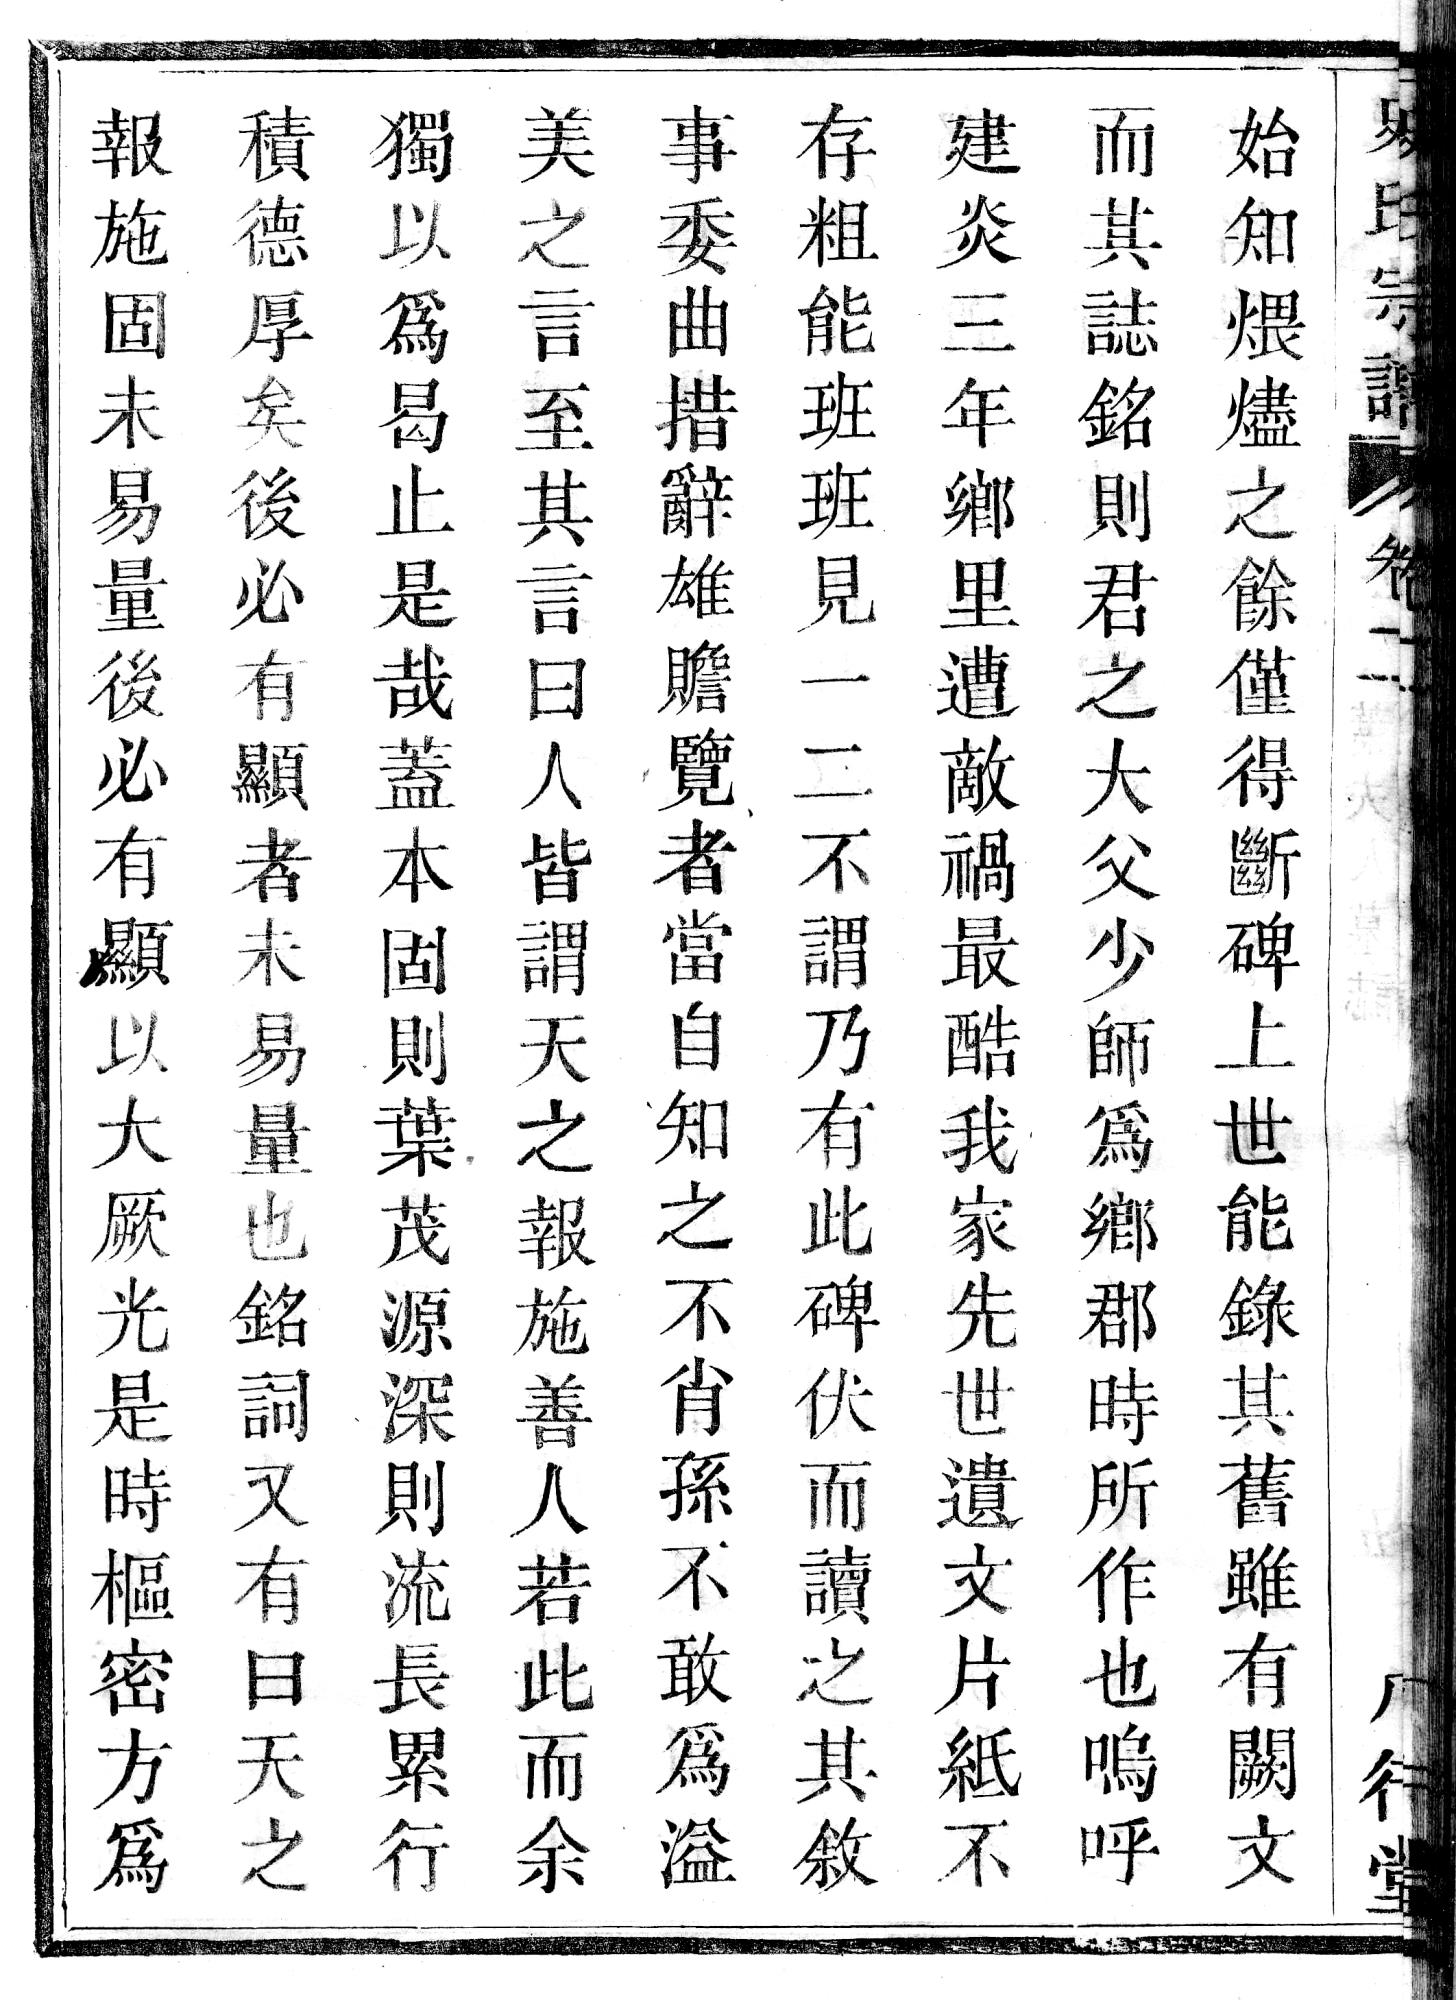 氏宗譜 卷二 行堂
始知煨燼之餘僅得斷碑上世能錄其舊雖有闕文
而其誌銘則君之大父少師爲鄉郡時所作也嗚呼
建炎三年鄉里遭敵禍最酷我家先世遺文片紙不
存粗能班班見一二不謂乃有此碑伏而讀之其敘
事委曲措辭雄贍覽者當自知之不肖孫不敢爲溢
美之言至其言曰人皆謂天之報施善人若此而余
獨以爲曷止是哉蓋本固則葉茂源深則流長累行
積德厚矣後必有顯者未易量也銘詞又有曰天之
報施固未易量後必有顯以大厥光是時樞密方爲